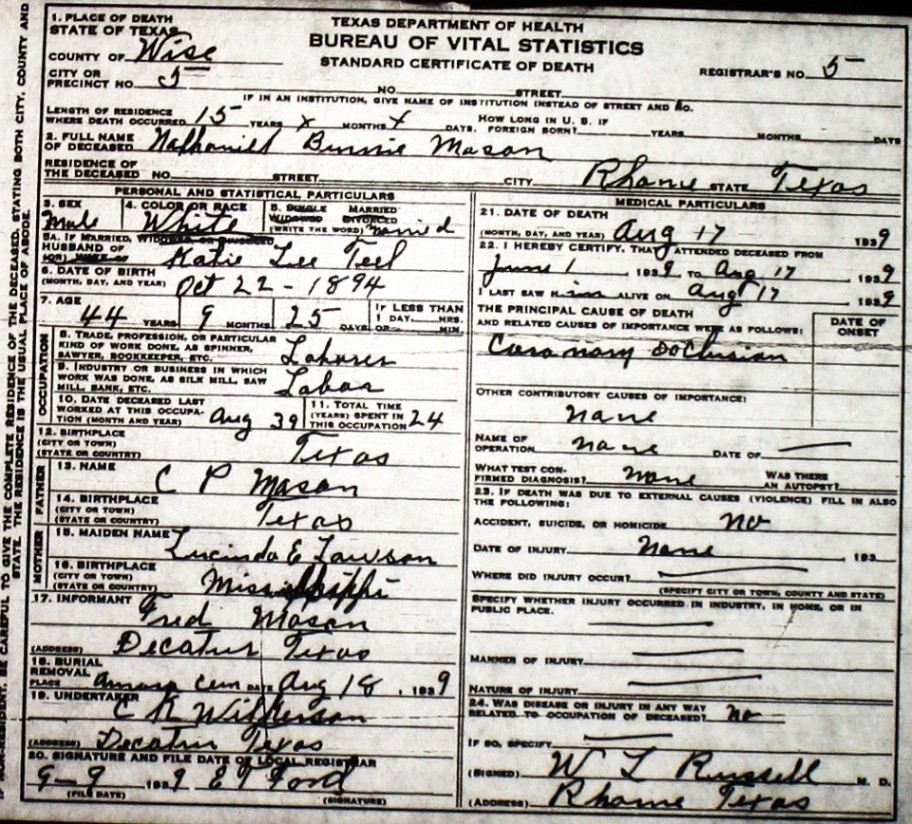 TEXAS DEPARTMENT OF HEALTH
BUREAU OF VITAL STATISTICS
STANDARD CERTIFICATE OF DEATH
1. PLACE OF DEATH
STATE OF TEXAS
COUNTY OF Wise
CITY OR PRECINCT NO. 5
NO. STREET
REGISTRAR'S NO. 5
IF IN AN INSTITUTION, GIVE NAME OF INSTITUTION INSTEAD OF STREET AND No.
LENGTH OF RESIDENCE WHERE DEATH OCCURRED 15 YEARS x MONTHS x DAYS. HOW LONG IN U. S. IF FOREIGN BORN? YEARS MONTHS DAYS
2. FULL NAME OF DECEASED Nathaniel Bunnie Mason
RESIDENCE OF THE DECEASED NO. STREET CITY Rhome STATE Texas
PERSONAL AND STATISTICAL PARTICULARS
3. SEX Male
4. COLOR OR RACE White
5. SINGLE MARRIED WIDOWED DIVORCED (WRITE THE WORD) married
5A. IF MARRIED, WIDOWED, OR DIVORCED
HUSBAND OF (OR) WIFE OF Katie Lee Teel
6. DATE OF BIRTH (MONTH, DAY, AND YEAR) Oct 22 - 1894
7. AGE 44 YEARS 9 MONTHS 25 DAYS IF LESS THAN 1 DAY, HRS. OR MIN.
OCCUPATION
8. TRADE, PROFESSION, OR PARTICULAR KIND OF WORK DONE, AS SPINNER, SAWYER, BOOKKEEPER, ETC. Laborer
9. INDUSTRY OR BUSINESS IN WHICH WORK WAS DONE, AS SILK MILL, SAW MILL, BANK, ETC. Labor
10. DATE DECEASED LAST WORKED AT THIS OCCUPATION (MONTH AND YEAR) Aug 39
11. TOTAL TIME (YEARS) SPENT IN THIS OCCUPATION 24
12. BIRTHPLACE (CITY OR TOWN) (STATE OR COUNTRY) Texas
FATHER
13. NAME C P Mason
14. BIRTHPLACE (CITY OR TOWN) (STATE OR COUNTRY) Texas
MOTHER
15. MAIDEN NAME Lucinda E Lawson
16. BIRTHPLACE (CITY OR TOWN) (STATE OR COUNTRY) Mississippi
17. INFORMANT Fred Mason
(ADDRESS) Decatur Texas
18. BURIAL REMOVAL
PLACE cem DATE Aug 18, 1939
19. UNDERTAKER C R Wilkerson
(ADDRESS) Decatur Texas
20. SIGNATURE AND FILE DATE OF LOCAL REGISTRAR
9-9 1939 E T Ford
(FILE DATE) (SIGNATURE)
MEDICAL PARTICULARS
21. DATE OF DEATH
(MONTH, DAY, AND YEAR) Aug 17 1939
22. I HEREBY CERTIFY, THAT I ATTENDED DECEASED FROM
June 1, 1939 TO Aug 17 1939
I LAST SAW Him ALIVE ON Aug 17 1939
THE PRINCIPAL CAUSE OF DEATH AND RELATED CAUSES OF IMPORTANCE WERE AS FOLLOWS:
DATE OF ONSET
Coronary Occlusion
OTHER CONTRIBUTORY CAUSES OF IMPORTANCE:
None
NAME OF OPERATION none DATE OF
WHAT TEST CONFIRMED DIAGNOSIS? None WAS THERE AN AUTOPSY?
23. IF DEATH WAS DUE TO EXTERNAL CAUSES (VIOLENCE) FILL IN ALSO THE FOLLOWING:
ACCIDENT, SUICIDE, OR HOMICIDE No
DATE OF INJURY None, 193
WHERE DID INJURY OCCUR?
(SPECIFY CITY OR TOWN, COUNTY AND STATE)
SPECIFY WHETHER INJURY OCCURRED IN INDUSTRY, IN HOME, OR IN PUBLIC PLACE.
MANNER OF INJURY
NATURE OF INJURY
24. WAS DISEASE OR INJURY IN ANY WAY RELATED TO OCCUPATION OF DECEASED? No
IF SO, SPECIFY
(SIGNED) W L Russell M. D.
(ADDRESS) Rhome Texas
BE CAREFUL TO GIVE THE COMPLETE RESIDENCE OF THE DECEASED, STATING BOTH CITY, COUNTY AND
STATE. THE RESIDENCE IS THE USUAL PLACE OF ABODE.